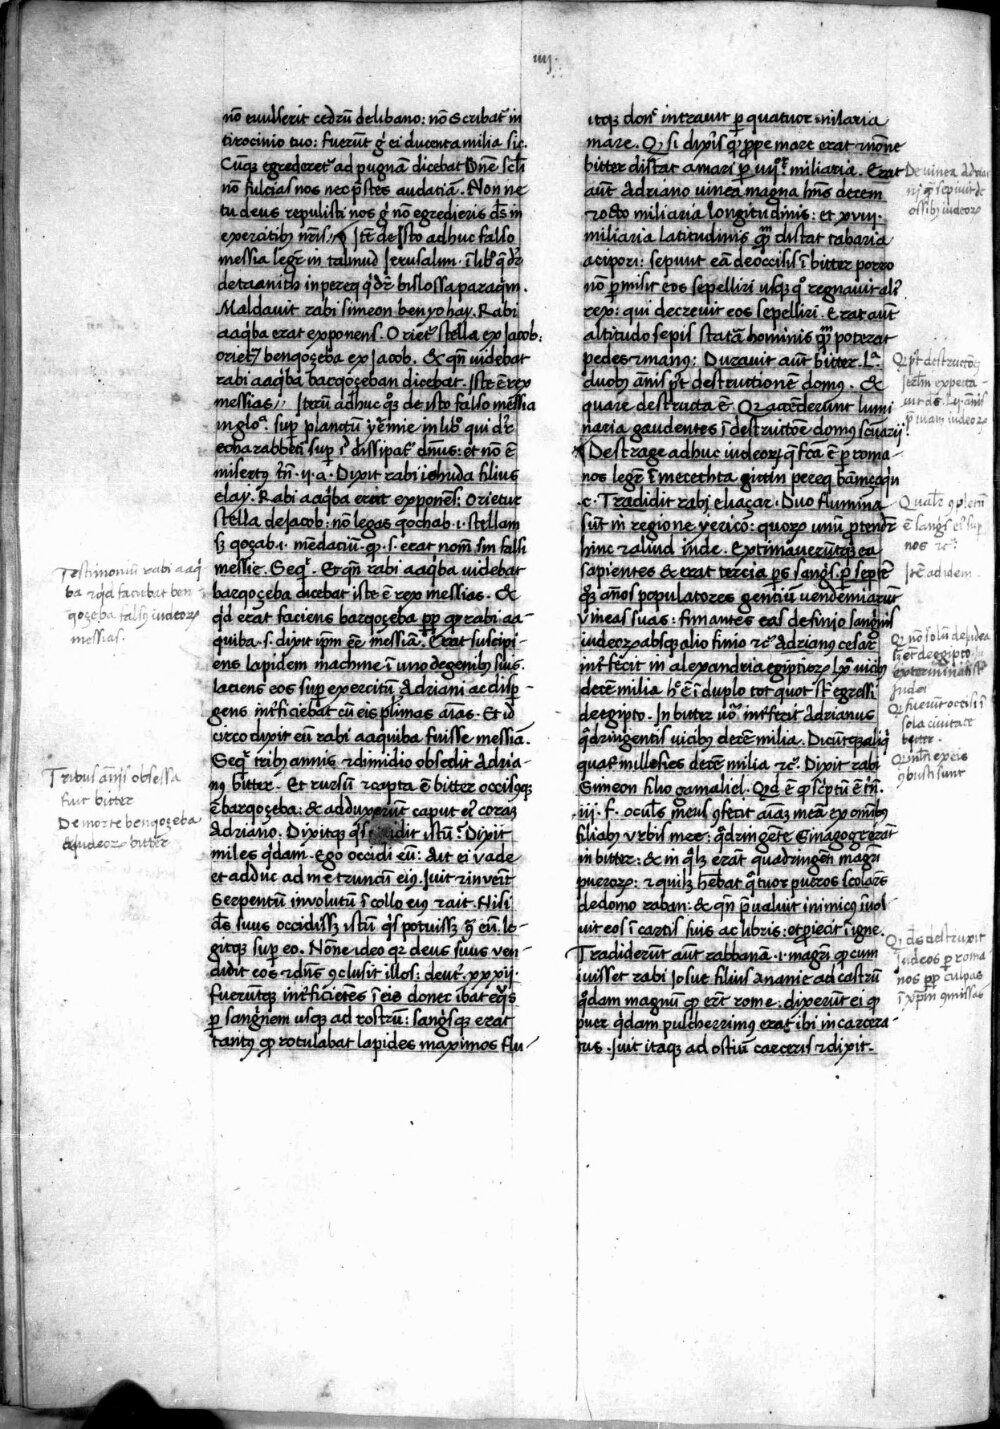 iiij.
nō euulserit cedrū de libano: nō scribat᷒ in
tirocinio tuo: fuerūt g̊ ei ducenta milia sic.
Cūqꝫ egrederet᷒ ad pugnā dicebat Dn̄e scl̄i
nō fulcias nos nec p̄stes audatiā. Non ne
tu deus repulisti nos g̊ nō egredieris d̄s in
exercitibꝰ nr̄is, Itē de isto adhuc falso
messia legr̄ in talmud Jerusalmi. ī libº q̇ dr̄
detaanith in pereq q̇ dr̄
Maldauit rabi simeon ben yohay. Rabi
aaq̇ba erat exponens. Oriet᷒ stella ex Jacob:
oriet᷒ benqoçeba ex Jacob. & qn̄ uidebat
rabi aaq̇ba barqoçeban dicebat. Iste ē rex
messias, Iterū adhuc de isto falso messia
in gloª. sup planctū yr̄emie in libº qui dr̄
echa rabbeti sup dissipat᷒ dn̄us: et nō ē
misertꝰ tn̄. ii. a. Dixit rabi iehuda filius
elay. Rabi aaq̇ba erat exponēs: Orietur
stella de Jacob: nō legas qochab .i. stellam
sꝫ qoçab .i. mēdaciū. qꝛ .s. erat nomē falsi
messie. Seqr̄. Et qn̄ rabi aaq̇ba uidebat
barqoçeba dicebat iste ē rex messias. &
q̇d erat faciens barqoçeba rabi aa-
quiba .s. dixit ip̄m eē messiā. Erat suscipi-
ens lapidem machine ī uno de genibꝰ suis
iaciens eos sup exercitū Adriani ac disp-
gens int̄ficiebat cū eis pl̄imas aīas. Et id
circo dixit eū rabi aaquiba fuisse messiā.
Seqr̄ tribꝰ annis ⁊ dimidio obsedit Adria-
nꝰ bitter. Et rursū ⁊ capta ē bitter occisꝰqꝫ
ē barqoçeba: & adduxerūt caput eiꝰ corā
Adriano. Dixitqꝫ istū? Dixit
miles q̇dam. Ego occidi eū: Ait ei vade
et adduc ad me truncū eiꝰ. Iuit ⁊ inuenit
serpentū inuolutū ī collo eiꝰ ⁊ ait. Nisi
d̄s suus occidissꝫ istū q̇s potuissꝫ eū. le-
gitqꝫ sup eo. Nōne ideo qꝛ deus suus ven
didit eos ⁊ dn̄s ꝯclusit illos: deut̄. xxxii.
fuerūtqꝫ int̄ficiētes ī eis donec ibat eqꝰs
ꝑ sanguinem usqꝫ ad rostrū: sangisqꝫ erat
tantꝰ qꝙ rotulabat lapides maximos flu-
itqꝫ donº intrauit ꝑ quatuor milaria
mare. Qꝙ si dixīs q̇ꝙ prope mare erat ⁊ nōne
bitter distat a mari ꝑ iiijºr miliaria. Erat
aūt Adriano uinea magna hn̄s decem
⁊ octo miliaria longitudinis: et xviii.
miliaria latitudinis distat tabaria
acipori: sepiuit eā de occisis ī bitter porro
nō ꝑmisit eos sepelliri usqꝫ qº regnauit aliꝰ
rex: qui decreuit eos sepelliri. Erat aūt
altitudo sepis statā hominis poterat
pedes ⁊ manꝰ: Durauit aūt bitter. Lª.
duobꝰ annis pꝰt destructionē domꝰ. &
quare destructa ē. Qꝛ accēderunt lumi
naria gaudentes ī destructōe domus sc̄uarij.
De strage adhuc iudeorꝫ q̄ fc̄a ē ꝑ roma-
nos legr̄ ī mecethta gitin pereq
.c. Tradidit rabi eliaçar. Duo flumina
sūt in regione yerico: quorꝫ unū ꝓtendr̄
hinc ⁊ aliud inde. Extimauerūtqꝫ ea
sapientes & erat tercia ꝑs sangis. ꝑ septē
añnos populatores gentiū vendemiarūt
vineas suas: fimantes eas de finio sang̊nis
iudeorꝫ absqꝫ alio finio ⁊c̄. Adrianꝰ cesar
int̄fecit in alexandria egiptiorꝫ lxª vicibꝰ
decē milia. hº ē ī duplo tot quot st̄ egressi
de egipto. In bitter uº int̄fecit Adrianus
q̇dringentis vicibꝰ decē milia. Dicūtqꝫ aliq̇
quat᷒ millesies decē milia ⁊c̄. Dixit rabi
Simeon filiꝰ gamaliel. Qd ē qꝙ sc̄ptū ē tn̄.
iii. f. oculꝰ meus ꝯfecit aīaꝫ meā ex oībus
filiabꝰ vrbis mee: q̇dringēte sinagoge erāt
in bitter: & in qlꝫ erāt quadringēti magr̄i
puerorꝫ: ⁊ quilꝫ hēbat q̇tuor pueros scolares
de domo raban: & qn̄ p̄ualuit inimicꝰ īuol-
uit eos ī cartis suis ac libris: et proiecit ī igne.
Tradiderūt aūt rabbanā .i. magr̄i qꝙ cum
iuisset rabi Josue filius Ananie ad castrū
q̇dam magnū qꝙ erat rome: dixerūt ei qꝙ
puer q̇dam pulcherrimus erat ibi incarcera-
tus. Iuit itaqꝫ ad ostiū carceris ⁊ dixit.
Testimoniū rabi aaq̇
ba ⁊ q̇d faciebat ben
qoçeba falsꝰ iudeorꝫ
messias.
Tribus annis obsessa
fuit bitter
De morte benqoçeba
& iudeorꝫ bitter
De vinea Adria
ni q̄ sepiuit de
ossibꝰ iudeorꝫ
Qꝙ pꝰt destructōeꝫ
Jerlm̄ expecta
uit d̄s. Lij. annis
iudeorꝫ
Qualr̄ ꝯpletū
ē sangis eiꝰ sup
nos ⁊c̄.
Itē ad idem
Qꝙ nō solū de iudea
sꝫ et de egipto
exterminati st̄
Judei
Qꝙ fuerūt occisi ī
sola ciuitate
bitter.
Qꝙ mlti ex eis
ꝯbusti sunt
Qꝙ d̄s destruxit
iudeos ꝑ roma
nos ꝓp culpas
ī xp̄m ꝯmissas